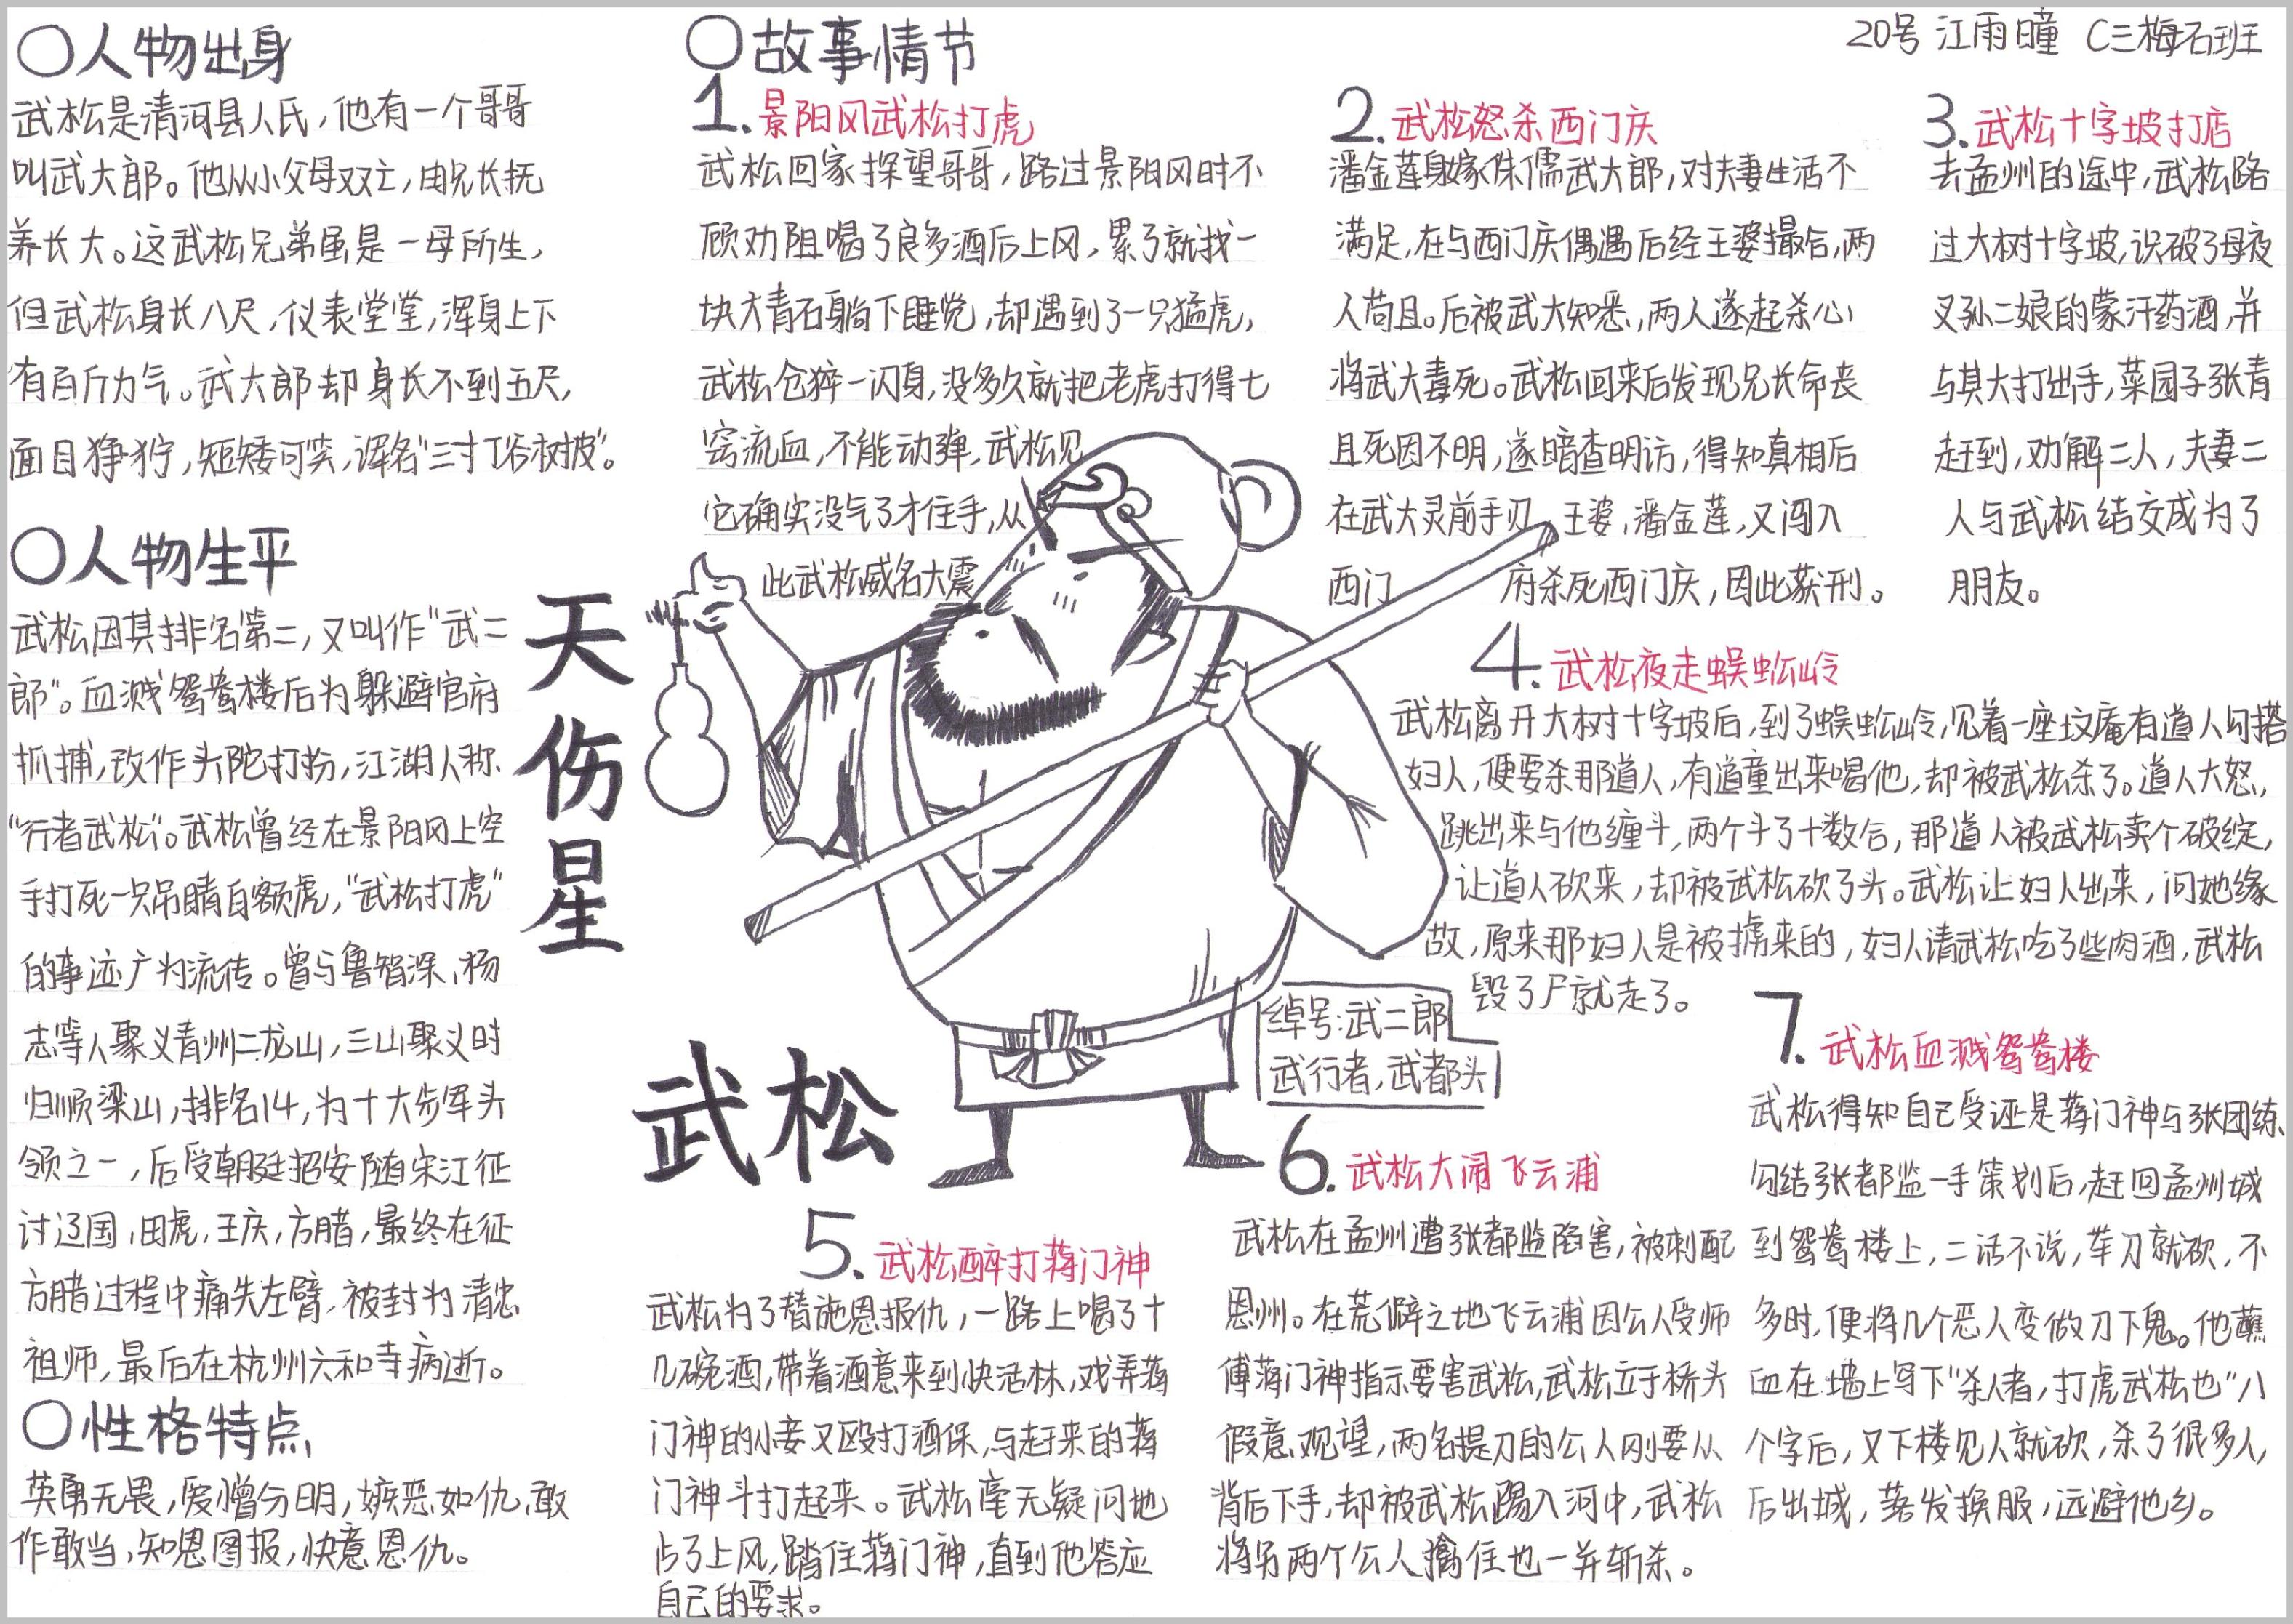 〇人物出身
武松是清河县人氏,他有一个哥哥
叫武大郎。他从小父母双亡,由兄长抚
养长大。这武松兄弟虽是一母所生,
但武松身长八尺,仪表堂堂,浑身上下
有百斤力气。武大郎却身长不到五尺,
面目狰狞,短矮可笑,诨名“三寸丁谷树皮”。
〇人物生平
武松因其排名第二,又叫作“武二
郎”。血溅鸳鸯楼后为躲避官府
抓捕,改作头陀打扮,江湖人称
“行者武松”。武松曾经在景阳冈上空
手打死一只吊睛白额虎,“武松打虎”
的事迹广为流传。曾与鲁智深、杨
志等人聚义青州二龙山,三山聚义时
归顺梁山,排名14,为十大步军头
领之一,后受朝廷招安随宋江征
讨辽国,田虎,王庆,方腊,最终在征
方腊过程中痛失左臂,被封为清忠
祖师,最后在杭州六和寺病逝。
〇性格特点
英勇无畏,爱憎分明,嫉恶如仇,敢
作敢当,知恩图报,快意恩仇。
天伤星
武松
绰号:武二郎
武行者,武都头
20号 江雨瞳 C三梅石班
〇故事情节
1.景阳冈武松打虎
武松回家探望哥哥,路过景阳冈时不
顾劝阻喝了良多酒后上冈,累了就找一
块大青石躺下睡觉,却遇到了一只猛虎,
武松仓猝一闪身,没多久就把老虎打得七
窍流血,不能动弹,武松见
它确实没气了才住手,从
此武松威名大震
2.武松怒杀西门庆
潘金莲身嫁侏儒武大郎,对夫妻生活不
满足,在与西门庆偶遇后经王婆撮合,两
人苟且。后被武大知悉,两人遂起杀心
将武大毒死。武松回来后发现兄长命丧
且死因不明,遂暗查明访,得知真相后
在武大灵前手刃王婆,潘金莲,又闯入
西门府杀死西门庆,因此获刑。
3.武松十字坡打店
去孟州的途中,武松路
过大树十字坡,识破了母夜
叉孙二娘的蒙汗药酒,并
与其大打出手,菜园子张青
赶到,劝解二人,夫妻二
人与武松结交成为了
朋友。
4.武松夜走蜈蚣岭
武松离开大树十字坡后,到了蜈蚣岭,见着一座坟庵有道人勾搭
妇人,便要杀那道人,有道童出来喝他,却被武松杀了。道人大怒,
跳出来与他缠斗,两个斗了十数合,那道人被武松卖个破绽,
让道人砍来,却被武松砍了头。武松让妇人出来,问她缘
故,原来那妇人是被掳来的,妇人请武松吃了些肉酒,武松
毁了尸就走了。
5.武松醉打蒋门神
武松为了替施恩报仇,一路上喝了十
几碗酒,带着酒意来到快活林,戏弄蒋
门神的小妾又殴打酒保,与赶来的蒋
门神斗打起来。武松毫无疑问地
占了上风,踏住蒋门神,直到他答应
自己的要求。
6.武松大闹飞云浦
武松在孟州遭张都监陷害,被刺配
恩州。在荒僻之地飞云浦因公人受师
傅蒋门神指示要害武松,武松立于桥头
假意观望,两名提刀的公人刚要从
背后下手,却被武松踢入河中,武松
将另两个公人擒住也一并斩杀。
7.武松血溅鸳鸯楼
武松得知自己受诬是蒋门神与张团练、
勾结张都监一手策划后,赶回孟州城
到鸳鸯楼上,二话不说,举刀就砍,不
多时,便将几个恶人变做刀下鬼。他蘸
血在墙上写下“杀人者,打虎武松也”八
个字后,又下楼见人就砍,杀了很多人,
后出城,落发换服,远避他乡。